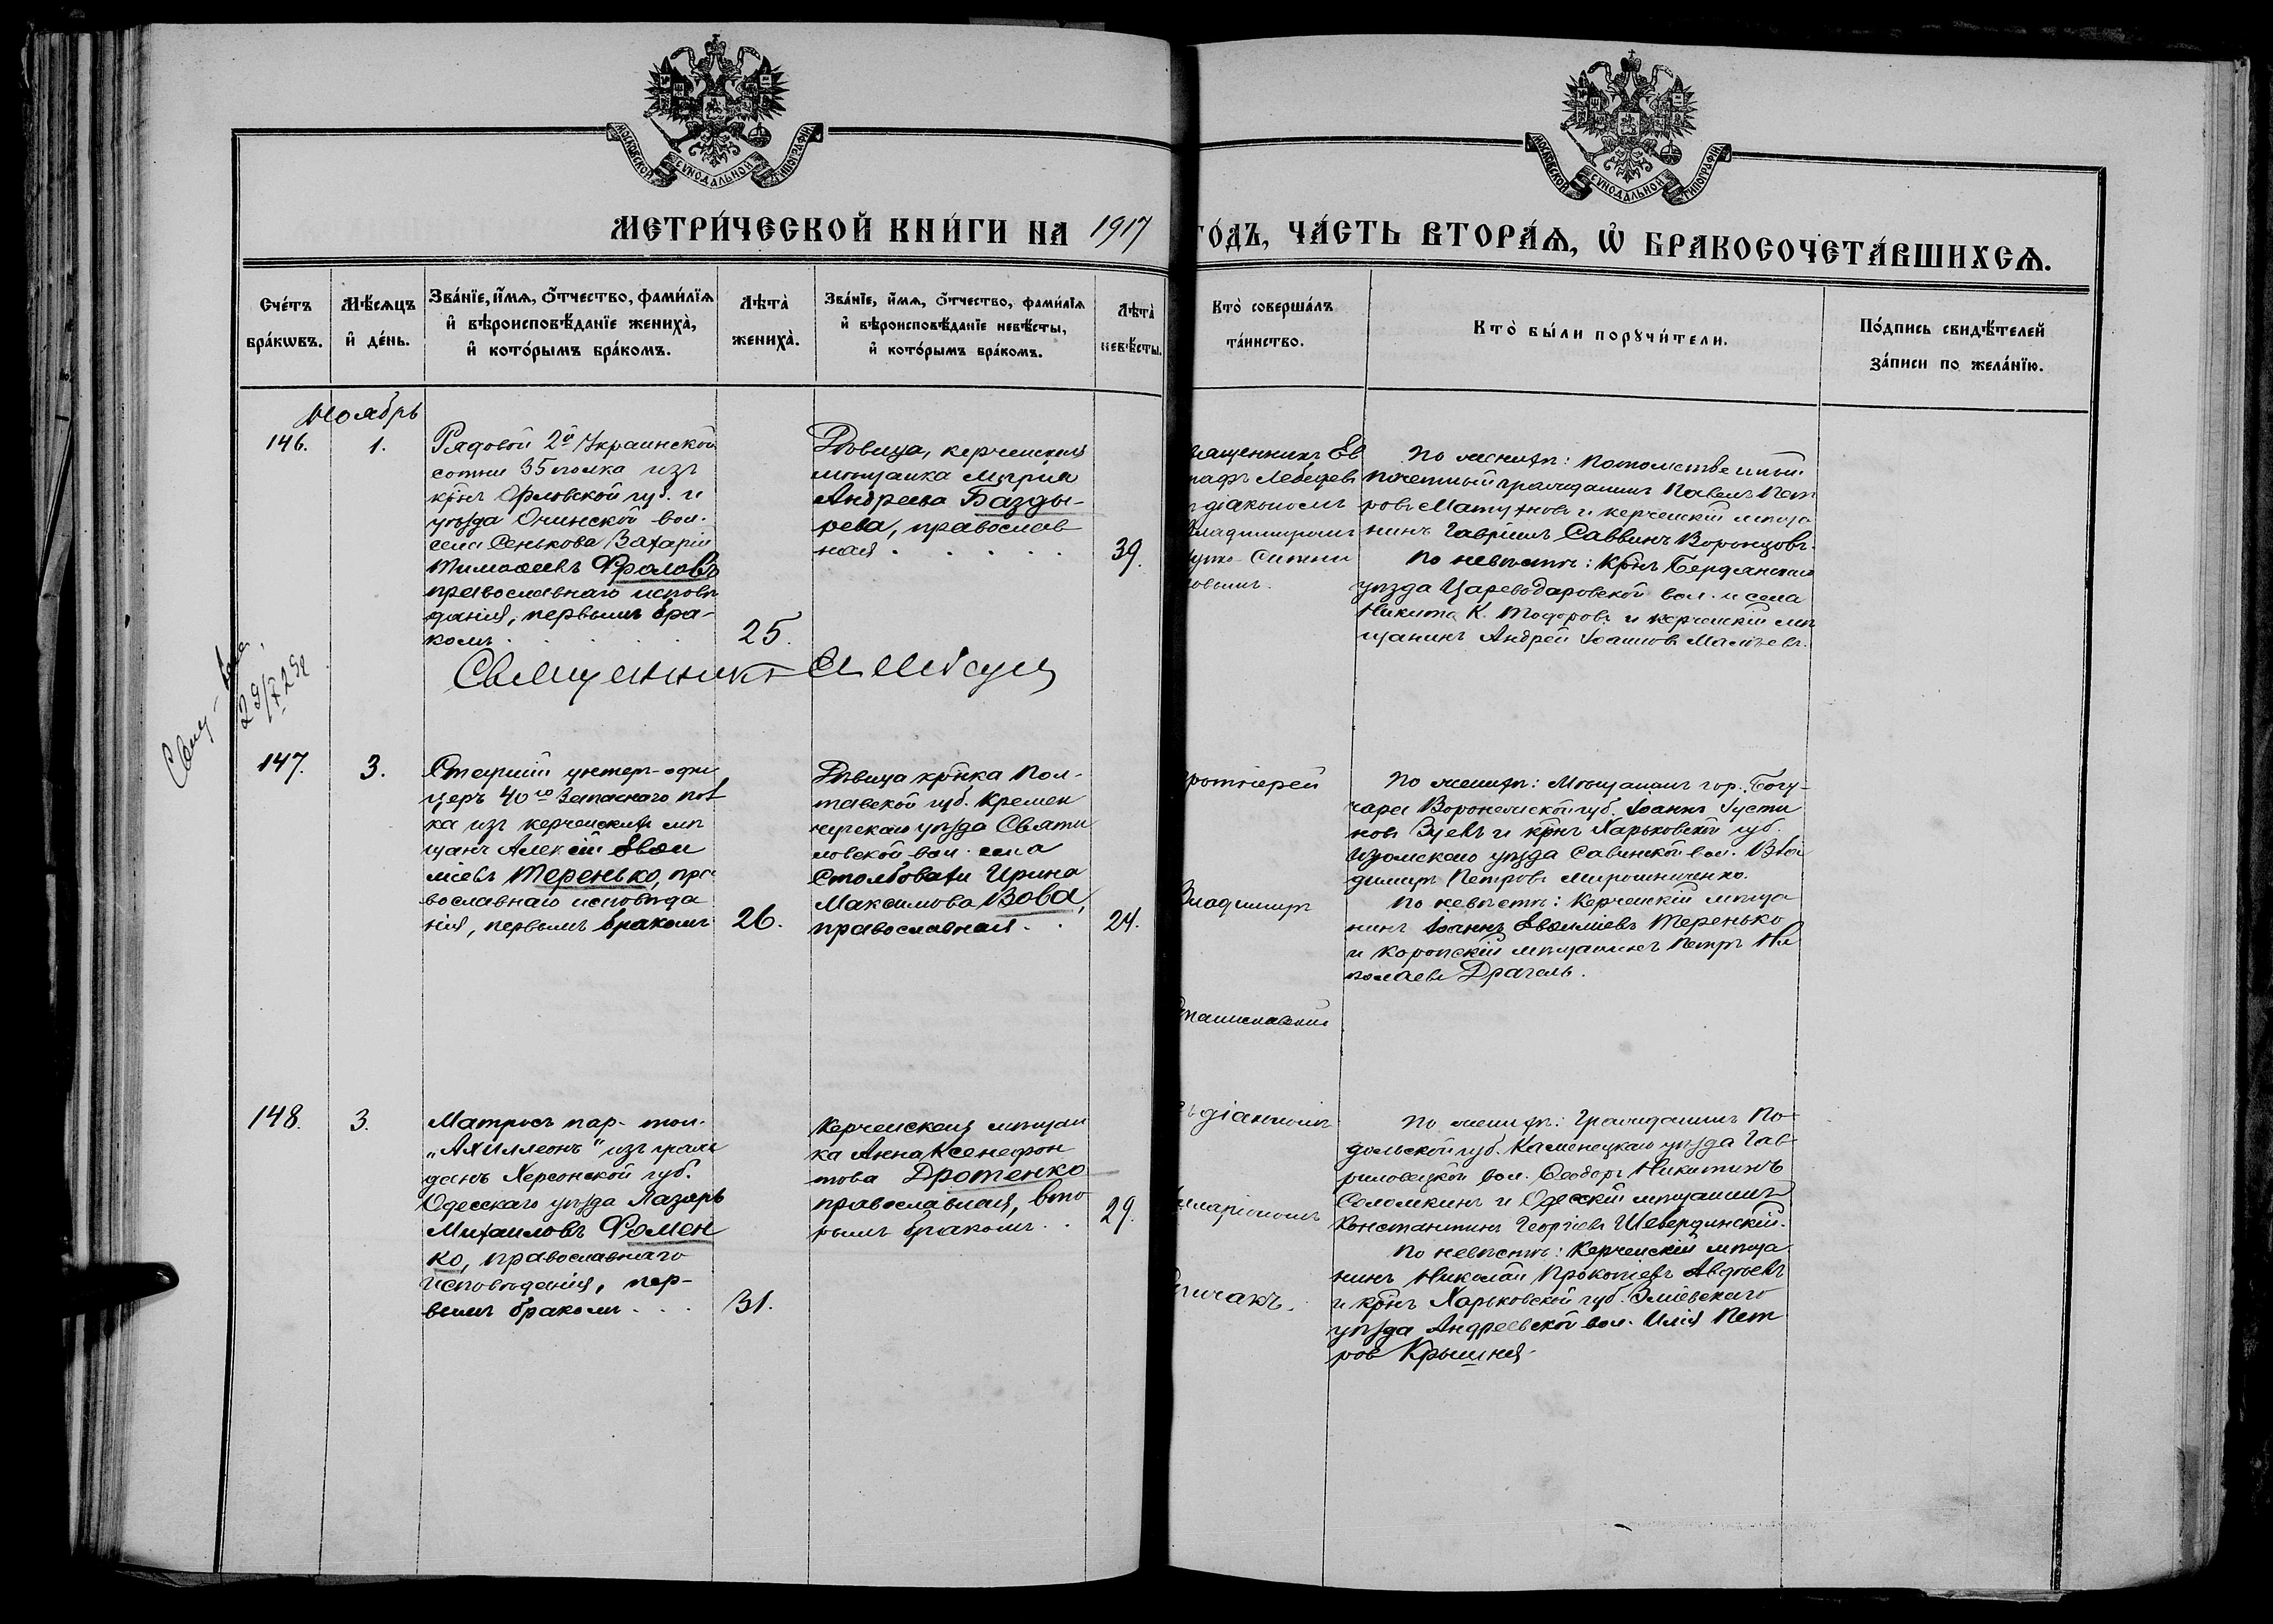 МОСКОВСКОЙ СѴНОДАЛЬНОЙ ТИПОГРАФІИ
МОСКОВСКОЙ СѴНОДАЛЬНОЙ ТИПОГРАФІИ
МЕТРИ́ЧЕСКОЙ КНИ́ГИ НА 1917
ГО́ДЪ, ЧА́СТЬ ВТОРА́Ѧ, Ѽ БРАКОСОЧЕТА́ВШИХСѦ.
Сче́тъ бра́кѡвъ.
Мѣ́сяцъ и҆ де́нь.
Зва́нїе, и҆́мѧ, ѻ҆́тчество, фами́лїѧ
и҆ вѣроисповѣ́данїе жениха̀,
и҆ кото́рымъ бра́комъ.
Лѣта̀ жениха̀.
Зва́нїе, и҆́мѧ, ѻ҆́тчество, фами́лїѧ
и҆ вѣроисповѣ́данїе невѣ́сты,
и҆ кото́рымъ бра́комъ.
Лѣта̀ невѣ́сты.
Кто̀ соверша́лъ
та́инство.
Кто̀ бы́ли порꙋчи́тели.
По́дпись свидѣ́телей
за́писи по жела́нїю.
Ноябрь
146.
1.
Рядовой 2й Украинской
сотни 35 полка изъ
крнъ Орловской губ. и
уѣзда Онинской вол.
села Сенькова Захарій
Тимоѳеевъ Фроловъ
православнаго исповѣ
данія, первымъ бра-
комъ
25.
Дѣвица, керченская
мѣщанка Марія
Андреева Базды-
рева, православ
ная
39.
вященникъ Ев
рафъ Лебедевъ
діакономъ
Владимиромъ
По женихѣ: Потомственный
почетный гражданинъ Павелъ Пет
ровъ Матуновъ и керченскій мѣща
нинъ Гавріилъ Саввинъ Воронцовъ.
По невѣстѣ: крнъ Бердянскаго
уѣзда Цареводаровской вол. и села
Никита К. Тодоровъ и керченскій мѣ
щанинъ Андрей Іоанновъ Малѣевъ.
Священникъ
29/7 29г
147.
3.
Старшій унтеръ-офи
церъ 40го Запаснаго пол
ка изъ керченскихъ мѣ
щанъ Алексій Евѳи
міевъ Теренько, пра
вославнаго исповѣда
нія, первымъ бракомъ
26.
Дѣвица крнка Пол-
тавской губ. Кремен
чугскаго уѣзда Святи
ловской вол. села
Столбовати Ирина
Максимова Вова,
православная
24.
ротоіерей
Владимиръ
таниславскій
По женихѣ: Мѣщанинъ гор. Богу-
чара Воронежской губ. Іоаннъ Іусти
новъ Зуевъ и крнъ Харьковской губ.
Изюмскаго уѣзда Савинской вол. Вла
димиръ Петровъ Мирошниченко.
По невѣстѣ: Керченскій мѣща
нинъ Іоаннъ Евѳиміевъ Теренько
и Коропскій мѣщанинъ Петръ Ни
колаевъ Драгель.
148.
3.
Матросъ пар. тол.
„Ахиллеонъ" изъ граж
данъ Херсонской губ.
Одесскаго уѣзда Лазарь
Михаиловъ Фомен
ко, православнаго
исповѣданія, пер-
вымъ бракомъ
31.
Керченская мѣщан
ка Анна Ксенофон
това Дротенко
православная, вто
рымъ бракомъ
29.
діакономъ
ларіономъ
личакъ.
По женихѣ: Гражданинъ По-
дольской губ. Каменецкаго уѣзда Гав-
риловецкой вол. Ѳеодоръ Никитинъ
Селемкинъ и Одесскій мѣщанинъ
Константинъ Георгіевъ Шевердинскій.
По невѣстѣ: Керченскій мѣща
нинъ Николай Прокопіевъ Авдѣевъ
и крнъ Харьковской губ. Зміевскаго
уѣзда Андреевской вол. Илія Пет
ровъ Крышня.